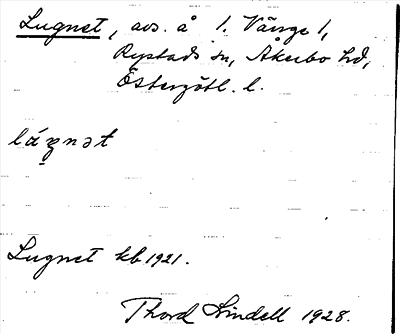 Lugnet, avs. å 1. Vänge 1,
Rystads sn, Åkerbo hd,
Östergötl. l.
láŋnət
Lugnet kb 1921.
Thord Lindell 1928.